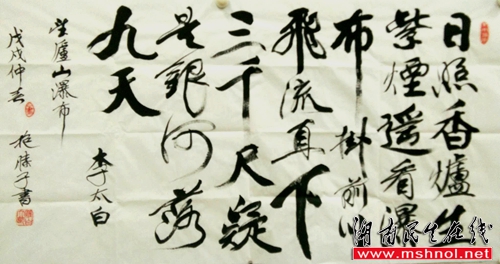 日照香爐生
紫煙遥看瀑
布掛前川
飛流直下
三千尺疑
是銀河落
九天
李太白
望廬山瀑布
戊戌仲春
子書
湖南民生在线
www.mshnol.net